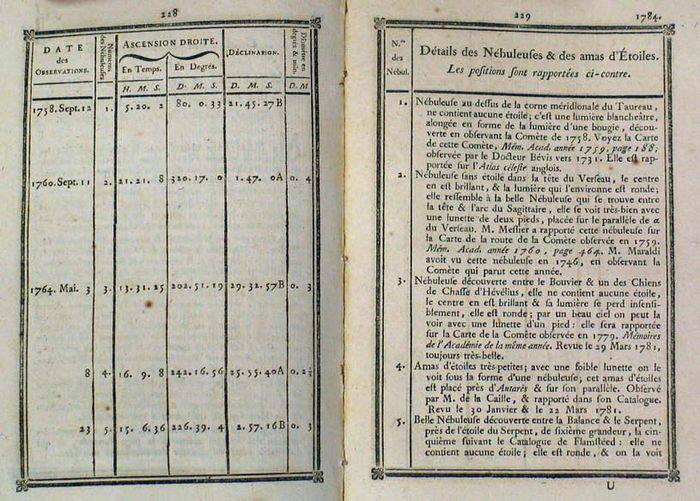 228
DATE
des
OBSERVATIONS.
Numéros
des Nébuleuses.
ASCENSION DROITE.
En Temps.
En Degrés.
DÉCLINAISON.
Diametre en
degrés & min.
H. M. S.
D. M. S.
D. M. S.
D. M.
1758. Sept. 12 1. 5. 20. 2 80. 0. 33 21. 45. 27 B
1760. Sept. 11 2. 21. 21. 8 320. 17. 0 1. 47. 0 A 0. 4
1764. Mai. 3 3. 13. 31. 25 202. 51. 19 29. 32. 57 B 0. 3
8 4. 16. 9. 8 242. 16. 56 25. 55. 40 A 0. 2½
23 5. 15. 6. 36 226. 39. 4 2. 57. 16 B 0. 3
229
1784.
N.os
des
Nébul.
Détails des Nébuleuſes & des amas d'Étoiles.
Les poſitions ſont rapportées ci-contre.
1. Nébuleuſe au deſſus de la corne méridionale du Taureau,
ne contient aucune étoile; c'eſt une lumière blancheâtre,
alongée en forme de la lumière d'une bougie, décou-
verte en obſervant la Comète de 1758. Voyez la Carte
de cette Comète, Mém. Acad. année 1759, page 188;
obſervée par le Docteur Bévis vers 1731. Elle eſt rap-
portée ſur l'Atlas céleſte anglois.
2. Nébuleuſe ſans étoile dans la tête du Verſeau, le centre
en eſt brillant, & la lumière qui l'environne eſt ronde;
elle reſſemble à la belle Nébuleuſe qui ſe trouve entre
la tête & l'arc du Sagittaire, elle ſe voit très-bien avec
une lunette de deux pieds, placée ſur le parallèle de α
du Verſeau. M. Meſſier a rapporté cette nébuleuſe ſur
la Carte de la route de la Comète obſervée en 1759.
Mém. Acad. année 1760, page 464. M. Maraldi
avoit vu cette nébuleuſe en 1746, en obſervant la
Comète qui parut cette année.
3. Nébuleuſe découverte entre le Bouvier & un des Chiens
de Chaſſe d'Hévélius, elle ne contient aucune étoile,
le centre en eſt brillant & ſa lumière ſe perd inſenſi-
blement, elle eſt ronde; par un beau ciel on peut la
voir avec une lunette d'un pied: elle ſera rapportée
ſur la Carte de la Comète obſervée en 1779. Mémoires
de l'Académie de la même année. Revue le 29 Mars 1781,
toujours très-belle.
4. Amas d'étoiles très-petites; avec une foible lunette on le
voit ſous la forme d'une nébuleuſe; cet amas d'étoiles
eſt placé près d'Antarès & ſur ſon parallèle. Obſervé
par M. de la Caille, & rapporté dans ſon Catalogue.
Revu le 30 Janvier & le 22 Mars 1781.
5. Belle Nébuleuſe découverte entre la Balance & le Serpent,
près de l'étoile du Serpent, de ſixième grandeur, la cin-
quième ſuivant le Catalogue de Flamſtéed: elle ne
contient aucune étoile; elle eſt ronde, & on la voit
U